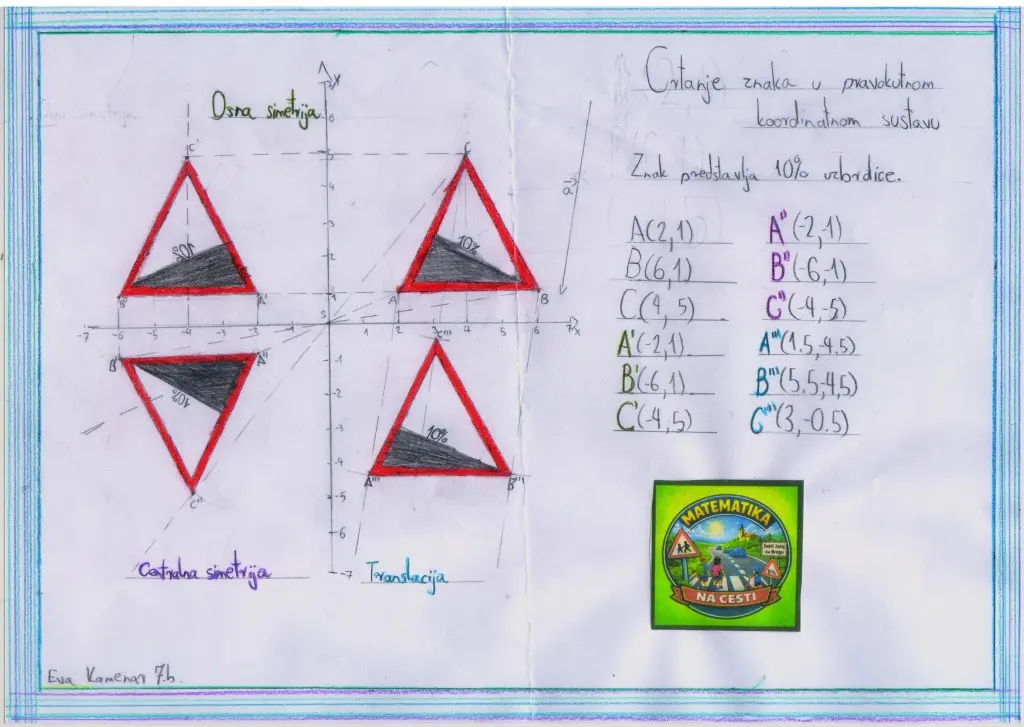 Crtanje znaka u pravokutnom
koordinatnom sustavu
Znak predstavlja 10% uzbrdice.
A(2,1)
B(6,1)
C(4,5)
A'(-2,1)
B'(-6,1)
C'(-4,5)
A"(-2,-1)
B"(-6,-1)
C"(-4,-5)
A'''(1.5,-4.5)
B'''(5.5,-4,5)
C'''(3,-0.5)
Osna simetrija
y
6
5
4
3
2
1
S
-7 -6 -5 -4 -3 -2 -1
1 2 3 4 5 6 7 x
-1
-2
-3
-4
-5
-6
-7
C'
B'
A'
10%
C
A
B
10%
a
B"
A"
C"
10%
C'''
A'''
B'''
10%
Centralna simetrija
Translacija
MATEMATIKA
Sveti Juraj
na Bregu
NA CESTI
Eva Kamenar 7.b.